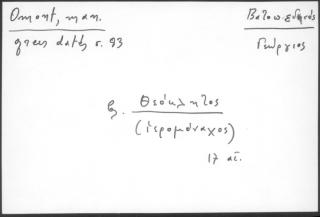 Omont, man.
grecs datés s. 93
Βατοπεδινός
Γεώργιος
β. Θεόκλητος
(ἱερομόναχος)
17 αἰ.